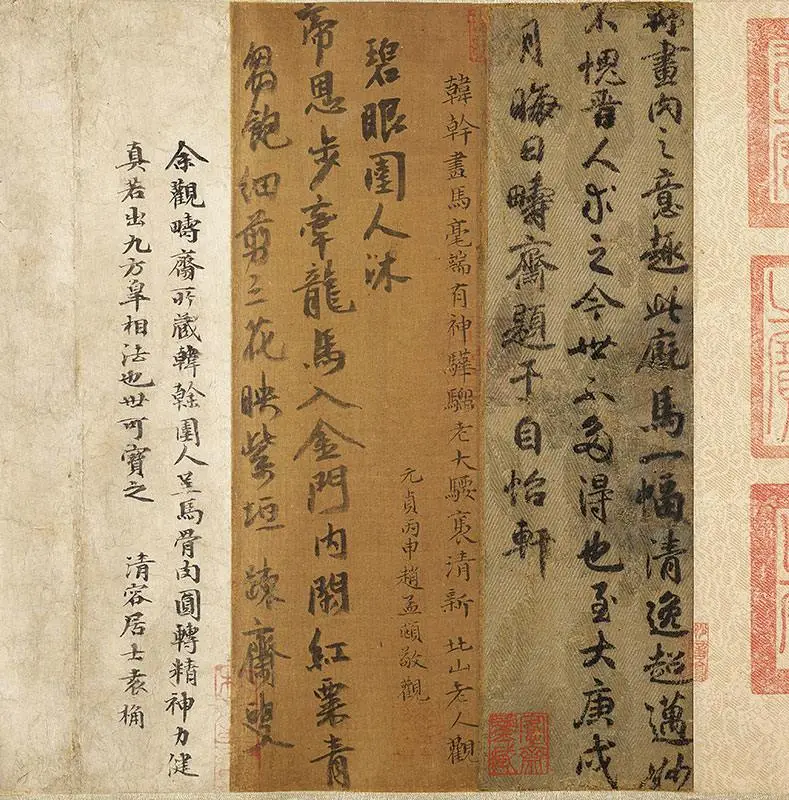 畫肉之意趣此廄馬一幅清逸超邁妙
不愧晉人求之今世不多得也至大庚戌
月晦日疇齋題于自怡軒
韓幹畫馬毫端有神驊騮老大騕褭清新 北山老人觀
元貞丙申趙孟頫敬觀
碧眼圉人沐
帝恩步牽龍馬入金門內閑紅粟青
芻飽細剪三花映紫垣 疎齋叟
余觀疇齋所藏韓幹圉人呈馬骨肉圓轉精神力健
真若出九方皐相法也世可寶之 清容居士袁桷